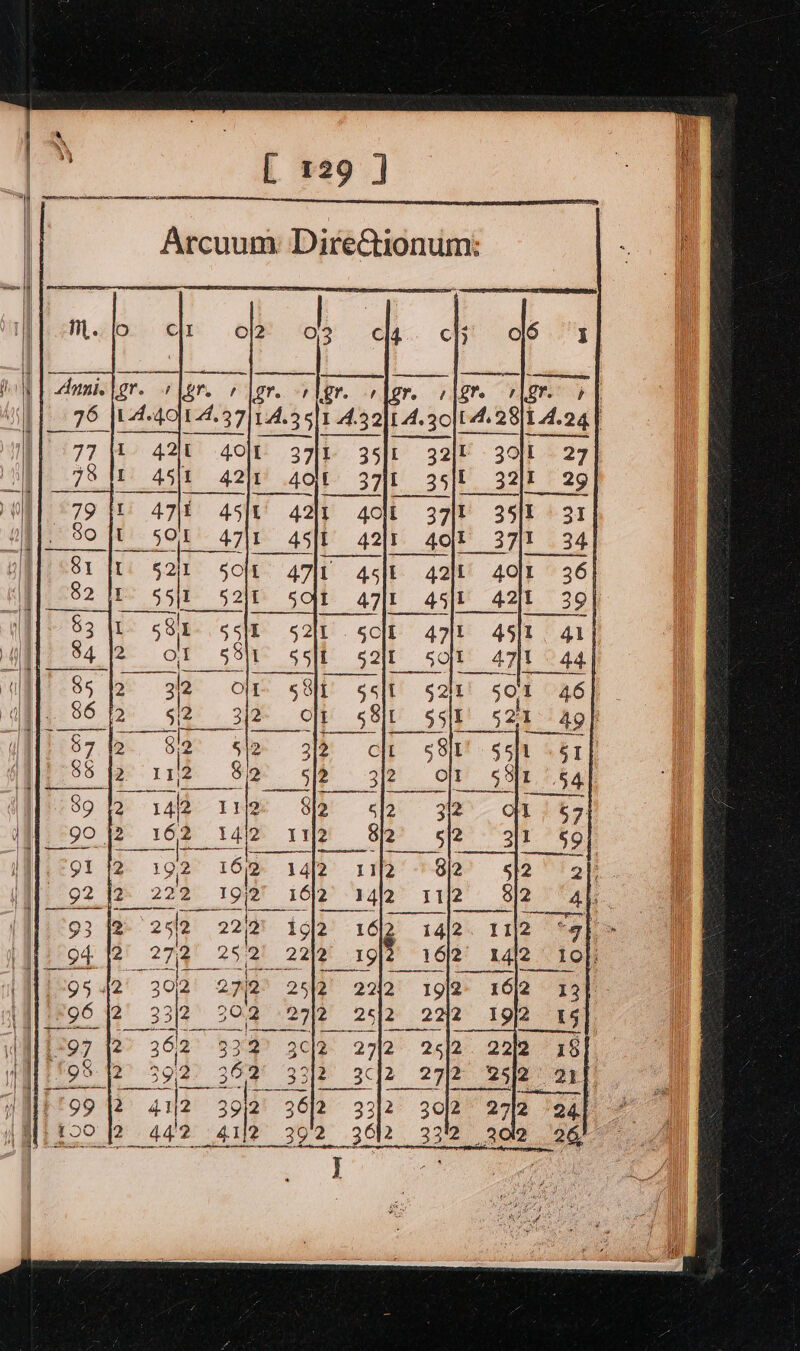 [ 129 ]
Arcuum Directionum:
m. | 0 0 | 1 0 | 2 0 | 3 0 | 4 0 | 5 0 | 6 1
Anni. | gr. ′ | gr. ′ | gr. ′ | gr. ′ | gr. ′ | gr. ′ | gr. ′
76 | 1 A.40 | 1 A.37 | 1 A.35 | 1 A.32 | 1 A.30 | 1 A.28 | 1 A.24
77 | 1 42 | 1 40 | 1 37 | 1 35 | 1 32 | 1 30 | 1 27
78 | 1 45 | 1 42 | 1 40 | 1 37 | 1 35 | 1 32 | 1 29
79 | 1 47 | 1 45 | 1 42 | 1 40 | 1 37 | 1 35 | 1 31
80 | 1 50 | 1 47 | 1 45 | 1 42 | 1 40 | 1 37 | 1 34
81 | 1 52 | 1 50 | 1 47 | 1 45 | 1 42 | 1 40 | 1 36
82 | 1 55 | 1 52 | 1 50 | 1 47 | 1 45 | 1 42 | 1 39
83 | 1 58 | 1 55 | 1 52 | 1 50 | 1 47 | 1 45 | 1 41
84 | 2 0 | 1 58 | 1 55 | 1 52 | 1 50 | 1 47 | 1 44
85 | 2 3 | 2 0 | 1 58 | 1 55 | 1 52 | 1 50 | 1 46
86 | 2 5 | 2 3 | 2 0 | 1 58 | 1 55 | 1 52 | 1 49
87 | 2 8 | 2 5 | 2 3 | 2 0 | 1 58 | 1 55 | 1 51
88 | 2 11 | 2 8 | 2 5 | 2 3 | 2 0 | 1 58 | 1 54
89 | 2 14 | 2 11 | 2 8 | 2 5 | 2 3 | 2 0 | 1 57
90 | 2 16 | 2 14 | 2 11 | 2 8 | 2 5 | 2 3 | 1 59
91 | 2 19 | 2 16 | 2 14 | 2 11 | 2 8 | 2 5 | 2 2
92 | 2 22 | 2 19 | 2 16 | 2 14 | 2 11 | 2 8 | 2 4
93 | 2 25 | 2 22 | 2 19 | 2 16 | 2 14 | 2 11 | 2 7
94 | 2 27 | 2 25 | 2 22 | 2 19 | 2 16 | 2 14 | 2 10
95 | 2 30 | 2 27 | 2 25 | 2 22 | 2 19 | 2 16 | 2 13
96 | 2 33 | 2 30 | 2 27 | 2 25 | 2 22 | 2 19 | 2 15
97 | 2 36 | 2 33 | 2 30 | 2 27 | 2 25 | 2 22 | 2 18
98 | 2 39 | 2 36 | 2 33 | 2 30 | 2 27 | 2 25 | 2 21
99 | 2 41 | 2 39 | 2 36 | 2 33 | 2 30 | 2 27 | 2 24
100 | 2 44 | 2 41 | 2 39 | 2 36 | 2 33 | 2 30 | 2 26
]